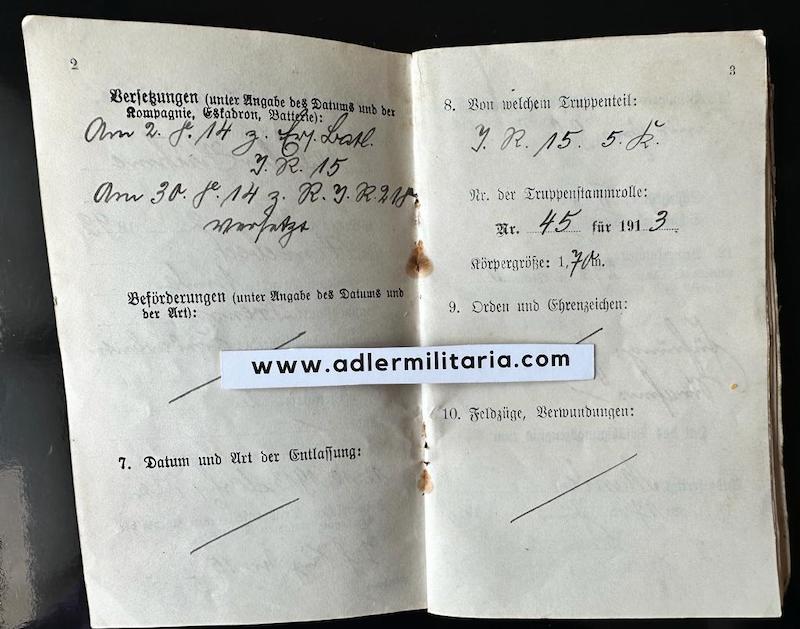 2
Versetzungen (unter Angabe des Datums und der
Kompagnie, Eskadron, Batterie):
Am 2. 14 z. Ers. Batl.
J. R. 15
Am 30. 14 z. R. J. R.
versetzt
Beförderungen (unter Angabe des Datums und
der Art):
7. Datum und Art der Entlassung:
3
8. Von welchem Truppenteil:
J. R. 15. 5. K.
Nr. der Truppenstammrolle:
Nr. 45 für 1913.
Körpergröße: 1,70m.
9. Orden und Ehrenzeichen:
www.adlermilitaria.com
10. Feldzüge, Verwundungen: